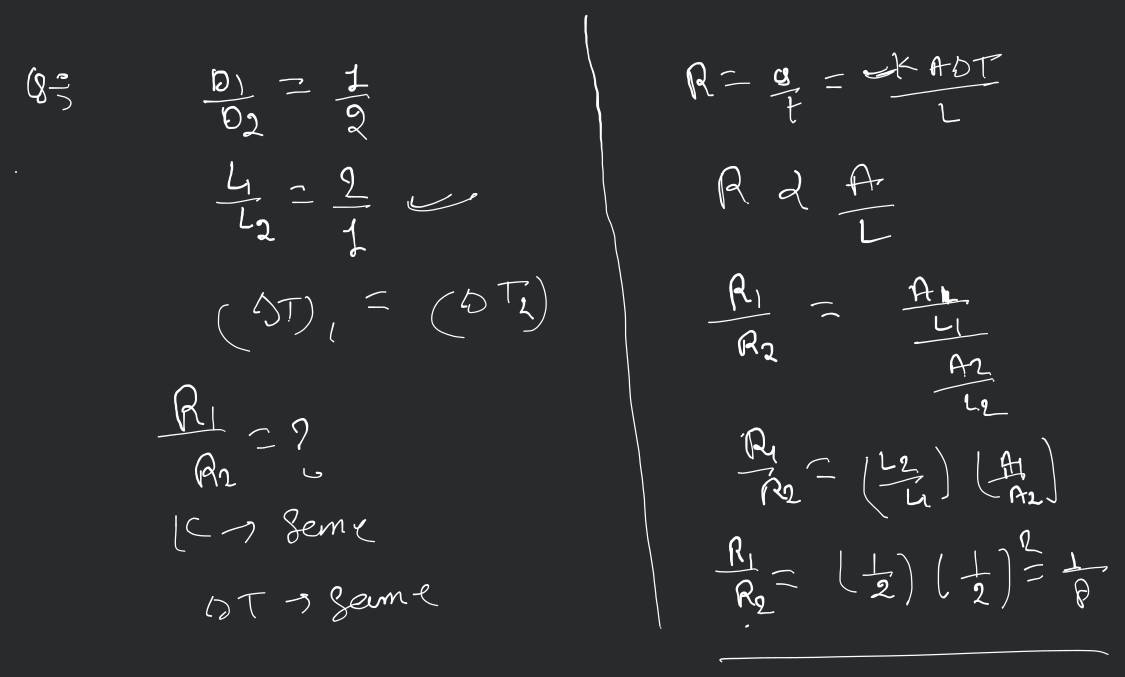 Q⇒
D1/D2 = 1/2
L1/L2 = 2/1 ✓
(ΔT)1 = (ΔT2)
R1/R2 = ?
K → Same
ΔT → same
R = Q/t = KAΔT/L
R α A/L
R1/R2 = (A1/L1)/(A2/L2)
R1/R2 = (L2/L1) (A1/A2)
R1/R2 = (1/2) (1/2)² = 1/8